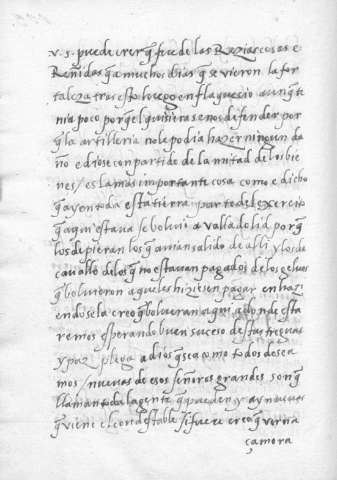 v. s. puede creer q̃ fue de las Razias cosas e
Reñidas q̃ a muchos dias q̃ se vieron la for
taleza tras esto luego enflaquecio aunq̃ te
nia poco porq̃ el q̃ quisiera se nos defender por
q̃ la artilleria no le podia hazer ningun da
ño e diose con partido de la mitad de los bie
nes / es la mas importante cosa como e dicho
q̃ ay en toda esta tierra parte del exercito
q̃ aqui estava se bolvio a valladolid porq̃
los de pie eran los q̃ avian salido de alli y los de
cavallo de los q̃ no estavan pagados de los q̃
q̃ bolvieron aquellos hiziesen pagar en haz
iendose la creo q̃ bolveran aqui adonde esta
remos esperando buen suceso destas treguas
y paz plega a dios q̃ sea como todos desea
mos / nuevas de esos señores grandes son q̃
llaman toda la gente q̃ pueden y ay nuevas
q̃ viene el condestable si fuere creo q̃ verna
çamora